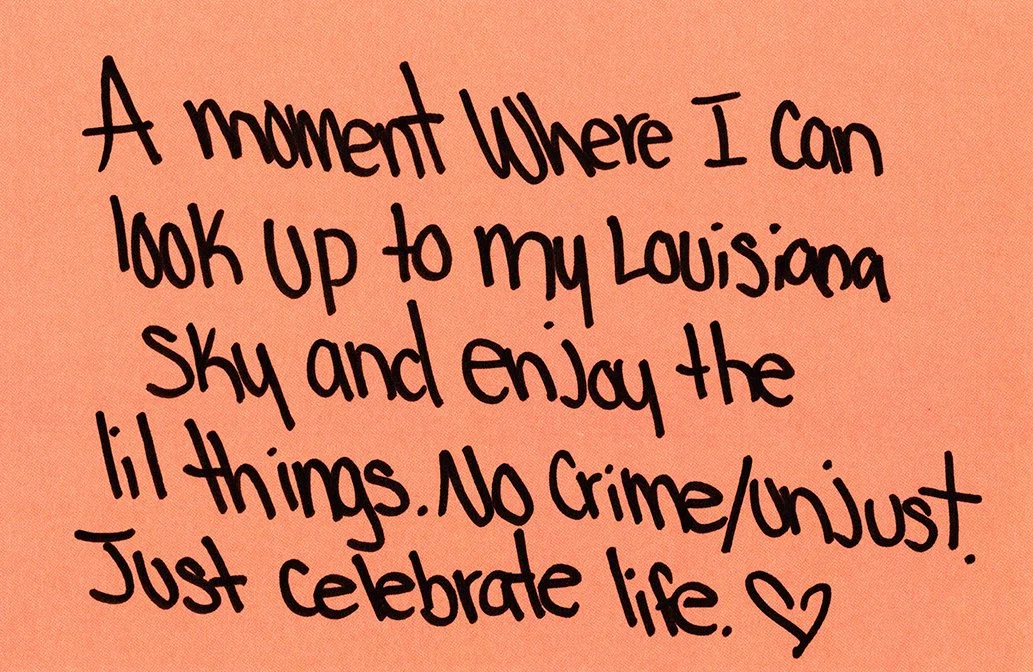 A moment Where I Can
look up to my Louisiana
Sky and enjoy the
lil things. No Crime/unjust.
Just celebrate life. ♡